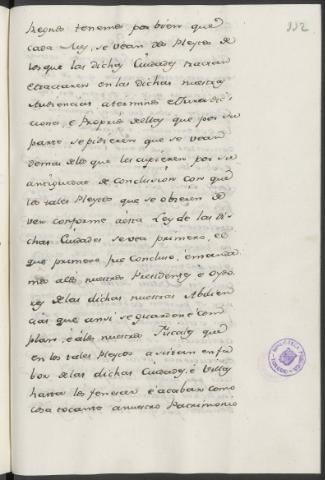 332
Regnos tenemos por bien que
cada Mes, se vean dos Pleytos de
los que las dichas Ciudades tratan
e trataren en las dichas nuestras
Audiencias a terminos e Jurisdic
ciones, e Propios dellas que por su
parte se pidieren que se vean
demas delos que les cupieren por su
antiguedad de conclusion con que
los tales Pleytos que se obieren de
ver conforme aesta Ley de las di
chas Ciudades se vea primero, el
que primero fue concluso, e manda
mos alos nuestros Presidentes e Oydo
res delas dichas nuestras Abdien
cias que ansi se guarden e cum
plan, e alos nuestros Fiscales que
en los tales Pleytos asistan en fa
bor delas dichas Ciudades, e Villas
hasta los fenecer e acabar como
cosa tocante anuestro Patrimonio